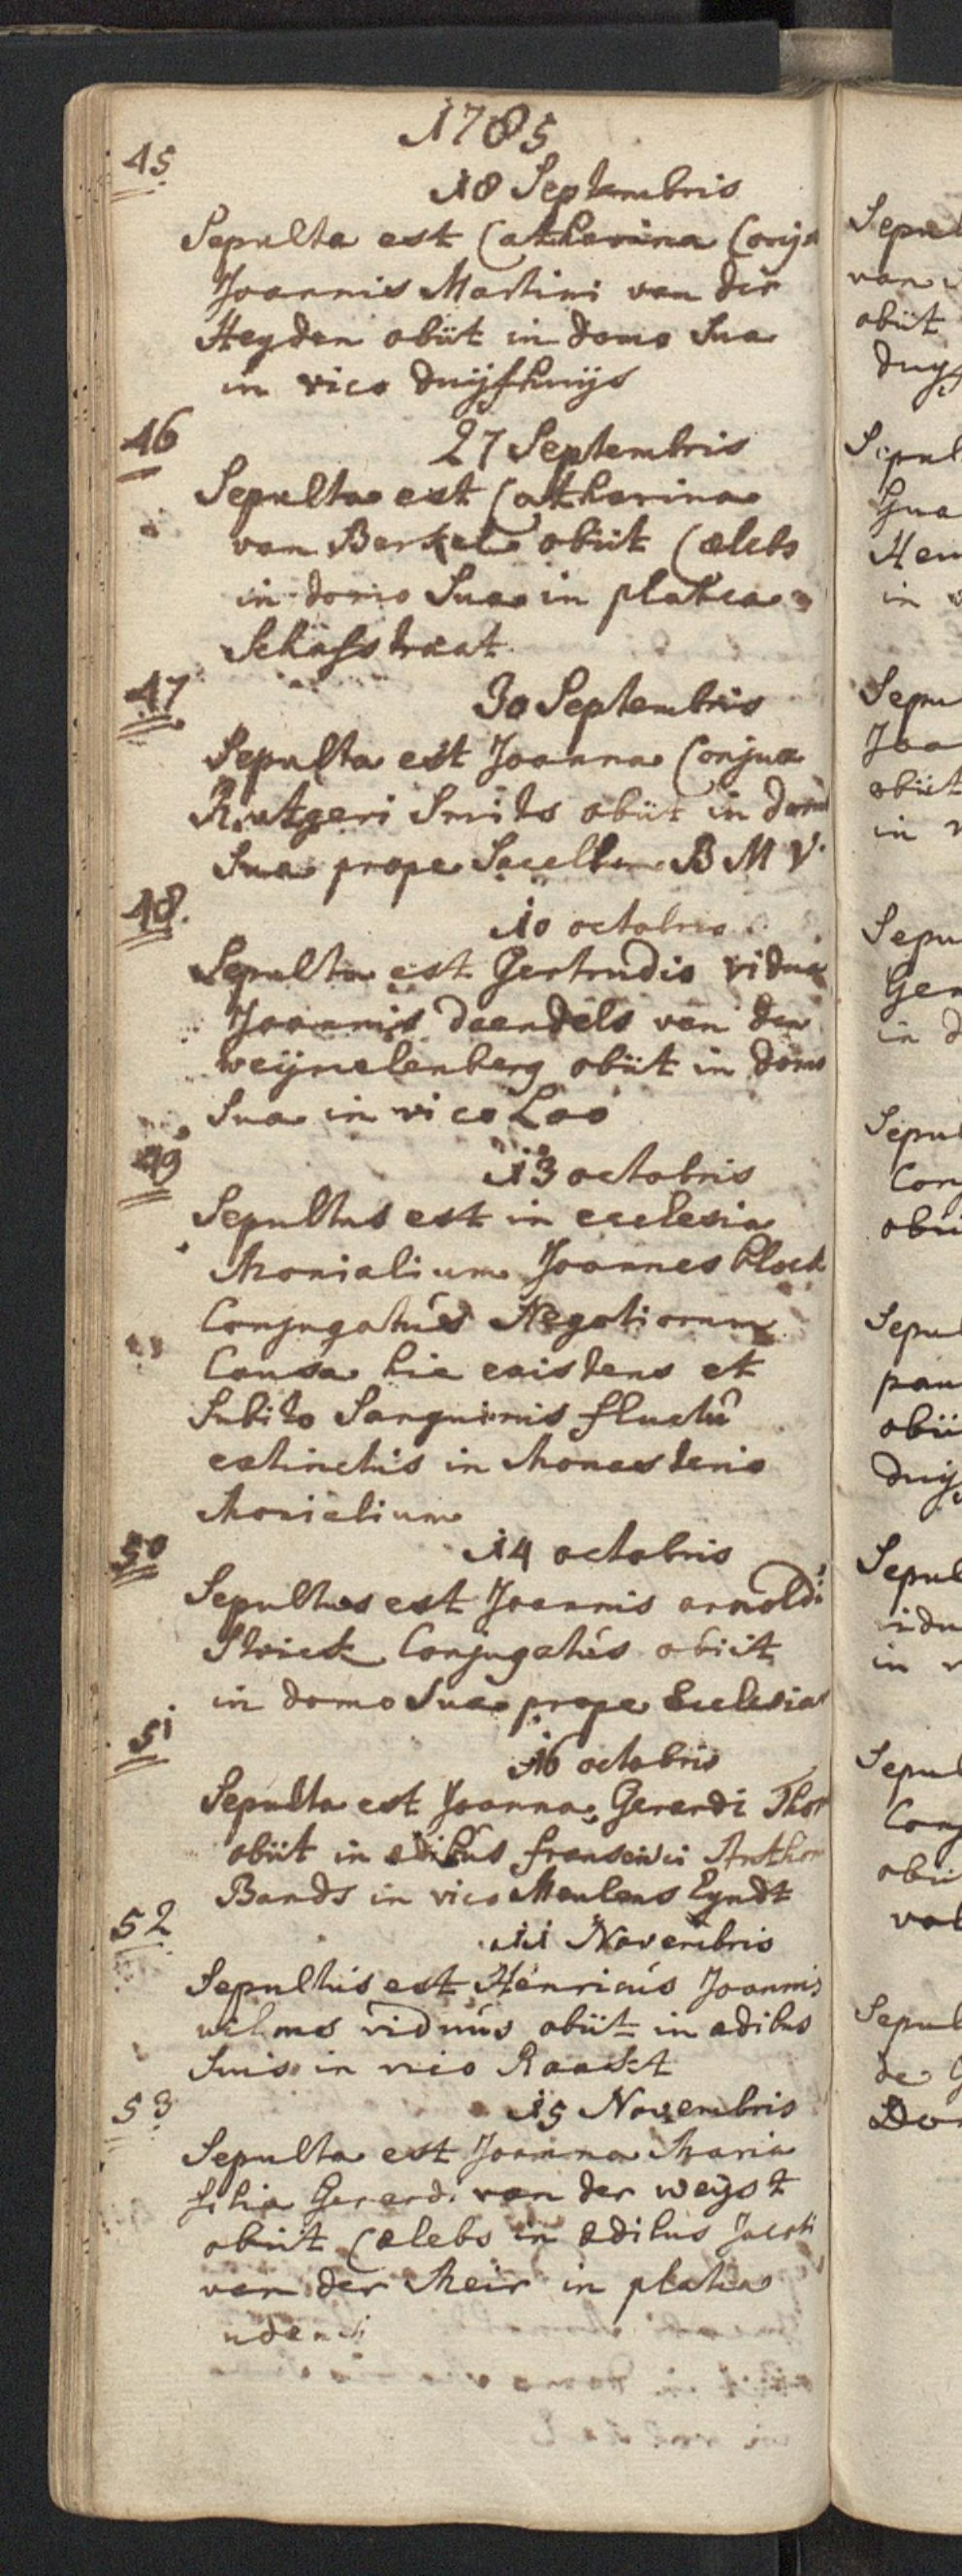 1785
45
18 Septembris
Sepulta est Catharina Conju
Joannis Martini van der
Heyden obiit in domo Sua
in vico duijfhuijs
46
27 Septembris
Sepulta est Catharina
van Berkel obiit Cælebs
in domo Sua in platea
Schafstraat
47
30 Septembris
Sepulta est Joanna Conjux
Rutgeri Smits obiit in domo
Sua prope Sacellum B M V
48.
10 octobris
Sepulta est Gertrudis vidua
Joannis daendels van den
weijnelenberg obiit in domo
Sua in vico Loo
49
13 octobris
Sepultus est in ecclesia
Monialium Joannes Block
Conjugatús Negotiorum
Causa hic existens et
Subito Sanguinis fluctû
extinctus in Monasterio
Monialium
50
14 octobris
Sepultus est Joannis arnoldi
Strick Conjugatús obiit
in domo Sua prope Ecclesia
51
16 octobris
Sepulta est Joanna Gerardi Thor
obiit in edibus francisci Anthon
Bands in vico Meulens Eyndt
52
11 Novembris
Sepultus est Henricus Joannis
wilms viduus obiit in ædibus
Suis in vico Raackt
53
15 Novembris
Sepulta est Joanna Maria
filia Gerardi van der weijst
obiit Cælebs in ædibus Jacobi
van der Meir in platea
udensi
Sepul
van
obiit
duy
Sepul
Gua
Hen
in
Sepu
Joa
obiit
in
Sepu
Ger
in d
Sepul
Con
obii
Sepul
pau
obii
duij
Sepul
vidu
in
Sepul
Conj
obii
vol
Sepul
de G
Dor